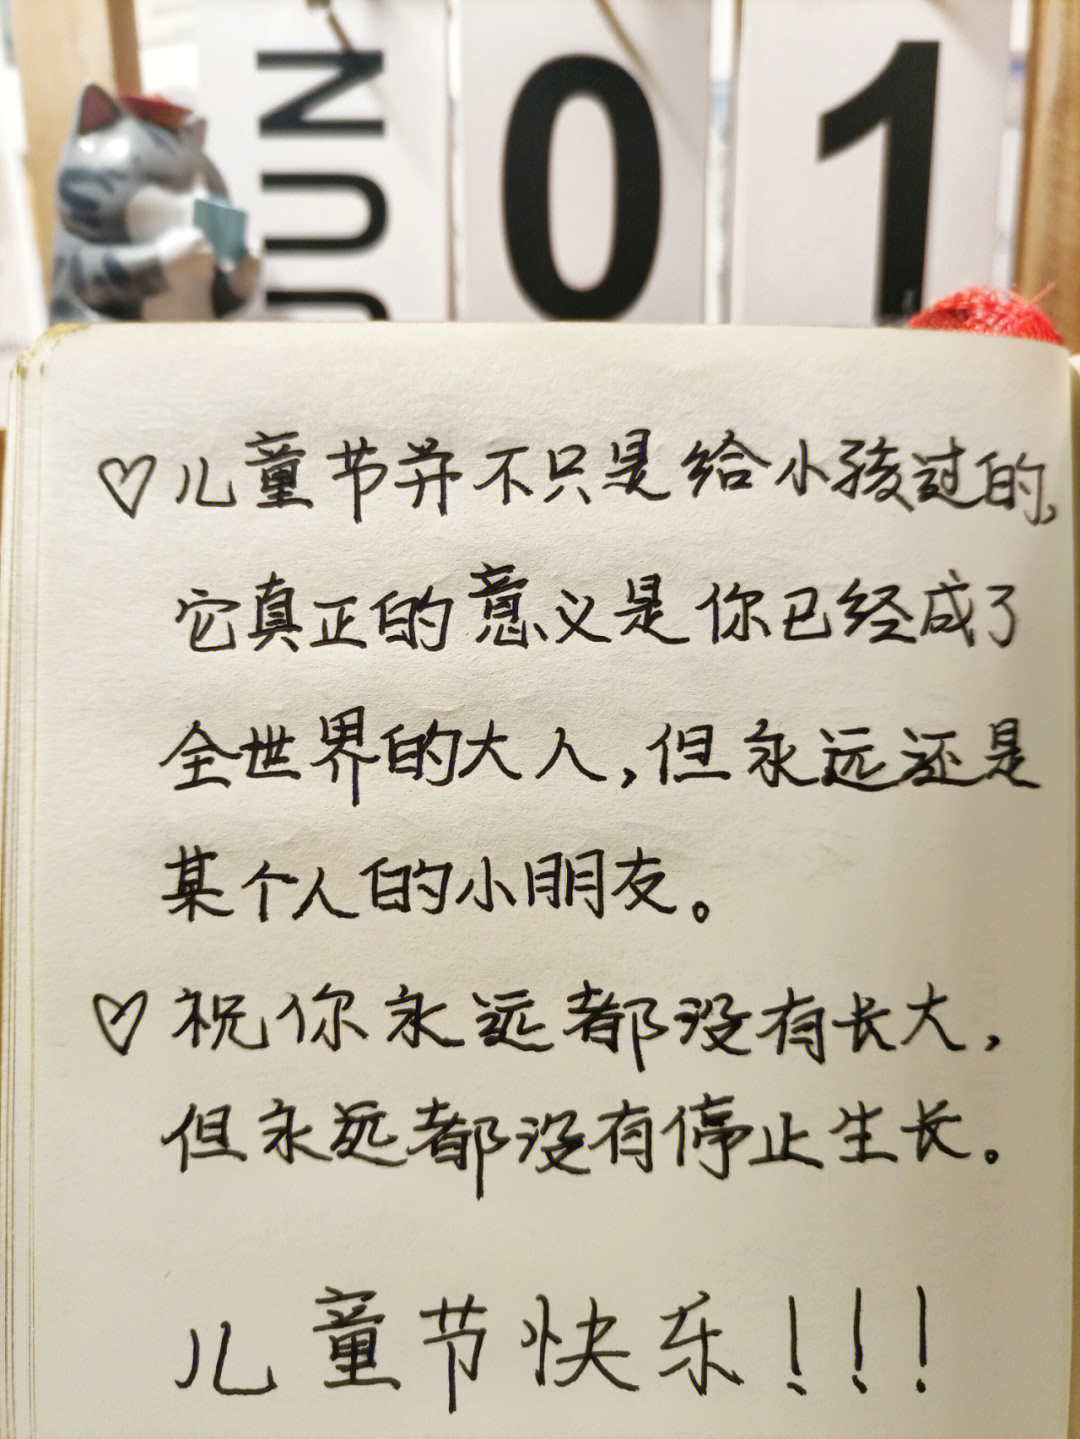 JUN 01
♡儿童节并不只是给小孩过的,
它真正的意义是你已经成了
全世界的大人,但永远还是
某个人的小朋友。
♡祝你永远都没有长大,
但永远都没有停止生长。
儿童节快乐!!!